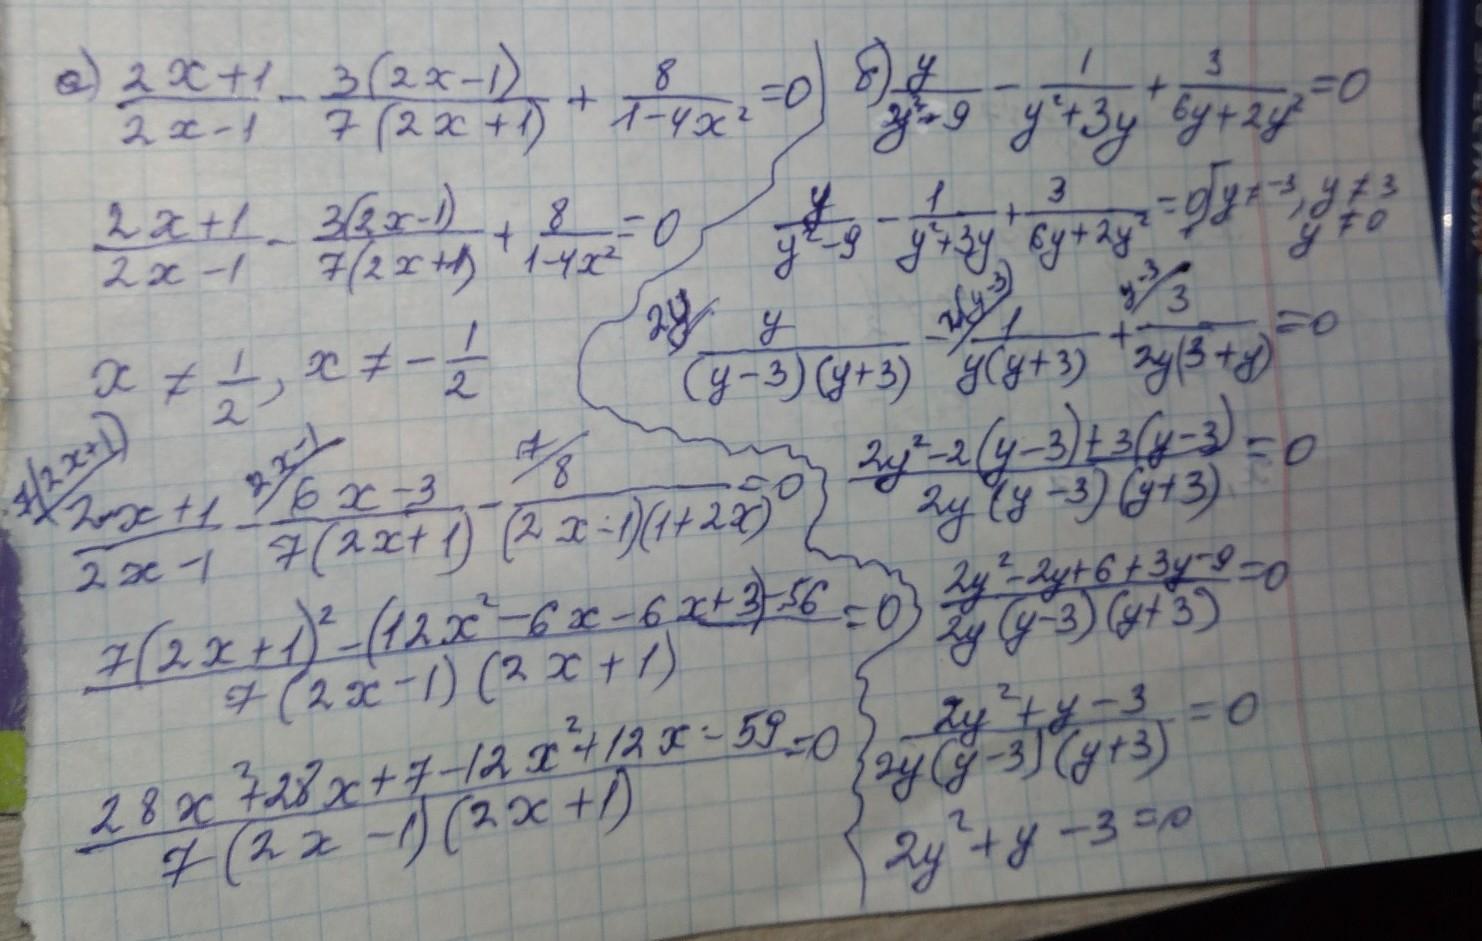 а) (2x+1)/(2x-1) - 3(2x-1)/(7(2x+1)) + 8/(1-4x²) = 0
(2x+1)/(2x-1) - 3(2x-1)/(7(2x+1)) + 8/(1-4x²) = 0
x ≠ 1/2, x ≠ -1/2
7(2x+1)/ (2x+1)/(2x-1) - 2x-1/ (6x-3)/(7(2x+1)) - 7/ 8/((2x-1)(1+2x)) = 0
(7(2x+1)² - (12x²-6x-6x+3)-56)/(7(2x-1)(2x+1)) = 0
(28x²+28x+7-12x²+12x-59)/(7(2x-1)(2x+1)) = 0
б) y/(y²-9) - 1/(y²+3y) + 3/(6y+2y²) = 0
y/(y²-9) - 1/(y²+3y) + 3/(6y+2y²) = 0 y ≠ -3, y ≠ 3
y ≠ 0
2y/ y/((y-3)(y+3)) - 2(y-3)/ 1/(y(y+3)) + y-3/ 3/(2y(3+y)) = 0
(2y²-2(y-3)+3(y-3))/(2y(y-3)(y+3)) = 0
(2y²-2y+6+3y-9)/(2y(y-3)(y+3)) = 0
(2y²+y-3)/(2y(y-3)(y+3)) = 0
2y²+y-3=0